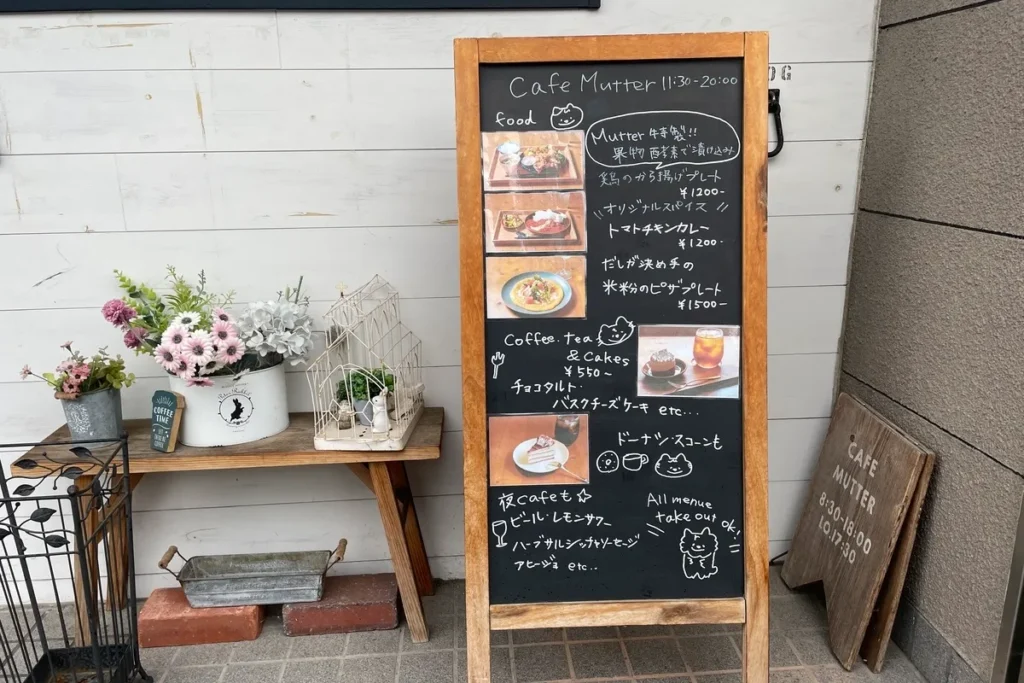 Cafe Mutter 11:30-20:00
food
Mutter 特製!!
果物酵素で漬け込み
鶏のから揚げプレート
¥1200-
オリジナルスパイス
トマトチキンカレー
¥1200-
だしが決め手の
米粉のピザプレート
¥1500-
Coffee. tea
& Cakes
¥550~
チョコタルト・
バスクチーズケーキ etc...
ドーナツ・スコーンも
夜cafeも☆
ビール・レモンサワー
ハーブサルシッチャソーセージ
アヒージョ etc..
All menue
take out ok!
COFFEE
TIME
CAFE
MUTTER
8:30-18:00
L.O.17:30
OG